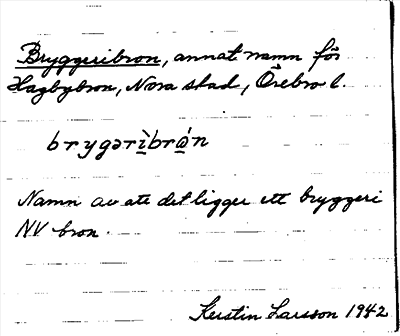 Bryggeribron, annat namn för
Hagbybron, Nora stad, Örebro l.
brygərìbrǫ́n
Namn av att det ligger ett bryggeri
NV bron.
Kerstin Larsson 1942